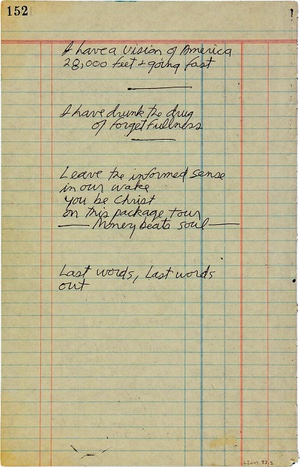 152
I have a vision of America
28,000 feet & going fast
I have drunk the drug
of forgetfullness
Leave the informed sense
in our wake
you be Christ
on this package tour
— Money beats soul —
Last words, Last words
out